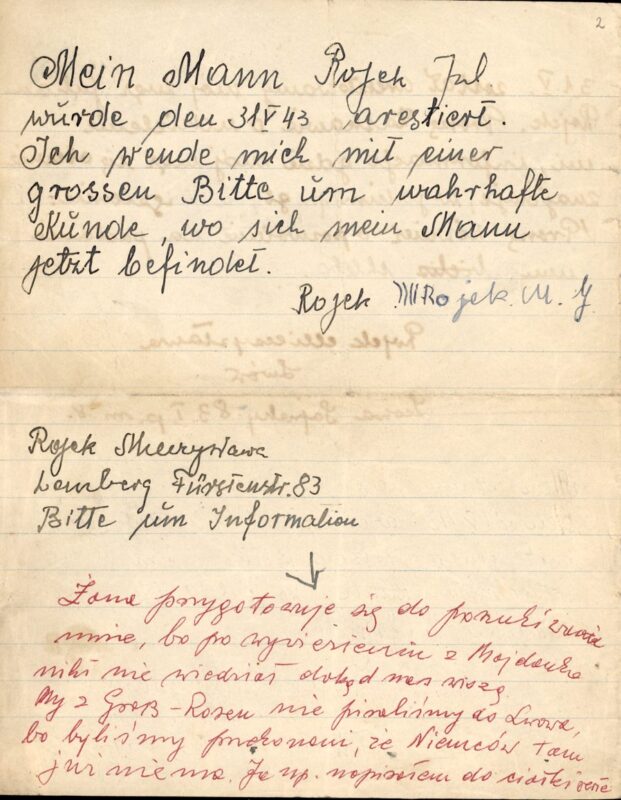 2
Mein Mann Rojek Jul
wurde den 31 V 43 arestiert.
Ich wende mich mit einer
grossen Bitte um wahrhafte
Kunde, wo sich mein Mann
jetzt befindet.
Rojek Rojek. M. J
Rojek Mieczysława
Lemberg Fürstenstr. 83
Bitte um Information
Żona przygotowuje się do poszukiwania
mnie, bo po wywiezieniu z Majdanka
nikt nie wiedział dokąd nas wiozą
My z Groß-Rosen nie pisaliśmy do Lwowa,
bo byliśmy przekonani, że Niemców tam
już niema. Ja np. napisałem do ciotki